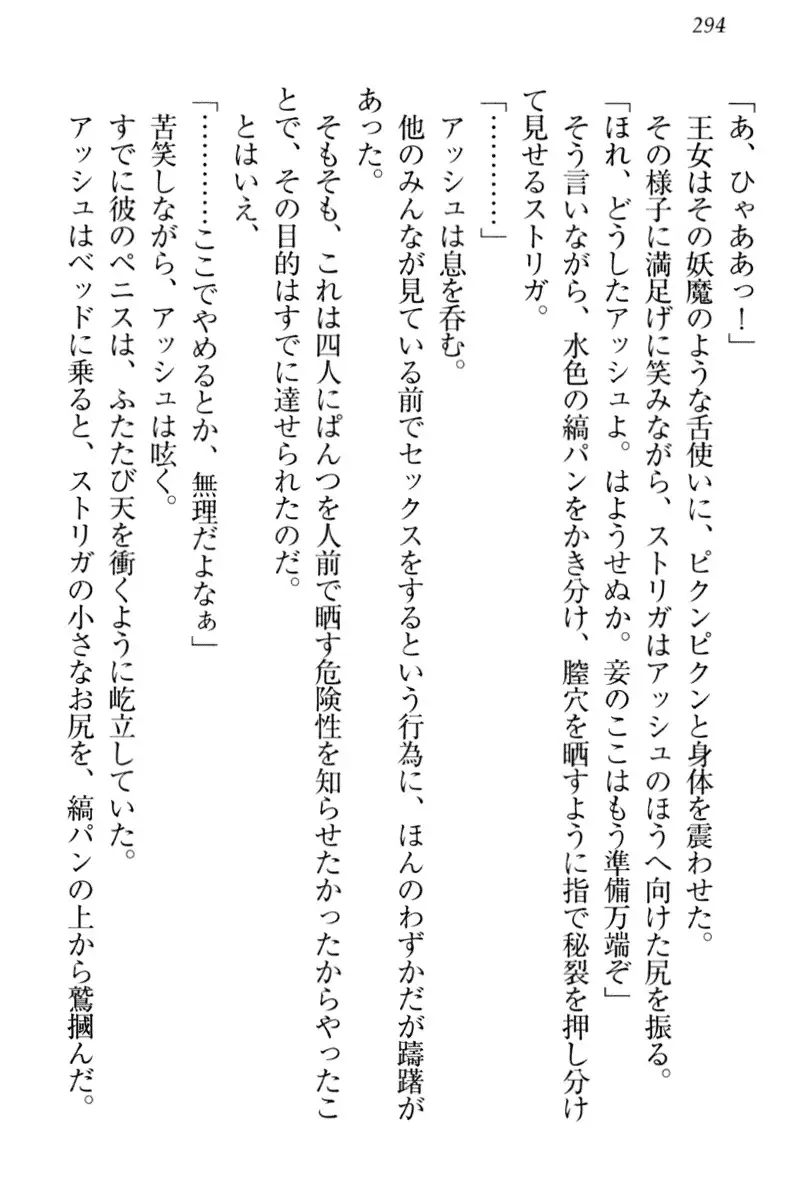 294
「あ、ひゃああっ！」
王女はその妖魔のような舌使いに、ピクンピクンと身体を震わせた。
その様子に満足げに笑みながら、ストリガはアッシュのほうへ向けた尻を振る。
「ほれ、どうしたアッシュよ。はようせぬか。妾のここはもう準備万端ぞ」
そう言いながら、水色の縞パンをかき分け、膣穴を晒すように指で秘裂を押し分け
て見せるストリガ。
「…………」
アッシュは息を呑む。
他のみんなが見ている前でセックスをするという行為に、ほんのわずかだが躊躇が
あった。
そもそも、これは四人にぱんつを人前で晒す危険性を知らせたかったからやったこ
とで、その目的はすでに達せられたのだ。
とはいえ、
「…………ここでやめるとか、無理だよなぁ」
苦笑しながら、アッシュは呟く。
すでに彼のペニスは、ふたたび天を衝くように屹立していた。
アッシュはベッドに乗ると、ストリガの小さなお尻を、縞パンの上から鷲摑んだ。